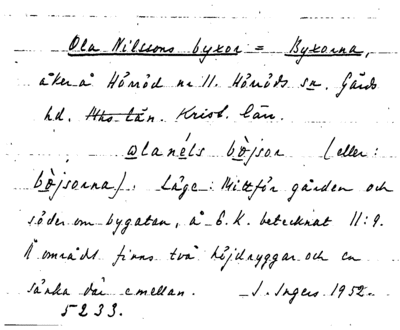 Ola Nilssons byxor = Byxorna,
åker å Hörröd nr 11. Hörröds sn. Gärds
hd. Mhs län. Krist. län.
ɷlanéls bòjsor (eller:
bòjsorna). Läge: Mittför gården och
söder om bygatan, å E.K. betecknat 11:9.
Å området finns två höjdryggar och en
sänka där emellan. J. Ingers 1952.
5233.